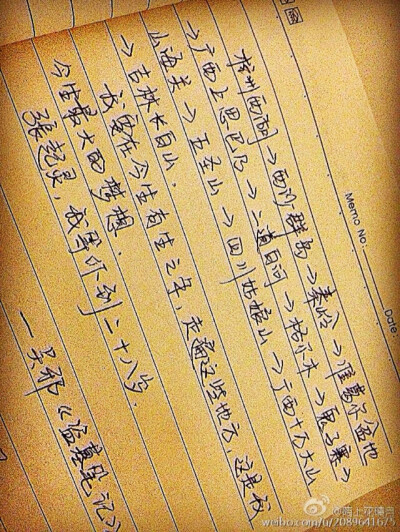 Memo No.
Date:
杭州西湖→西沙群岛→秦岭→准葛尔盆地
→广西上思巴乃→二道白河→格尔木→鬼子寨→
山海关→五圣山→四川姑娘山→广西十万大山
→吉林长白山.
我要在今生有生之年,走遍这些地方,这是我
今生最大的梦想.
张起灵,我等你到二十八岁.
—吴邪《盗墓笔记》
weibo.com/u/2089641675